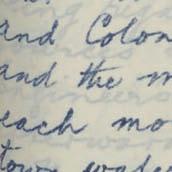 and Colon
and the m
each mo
town